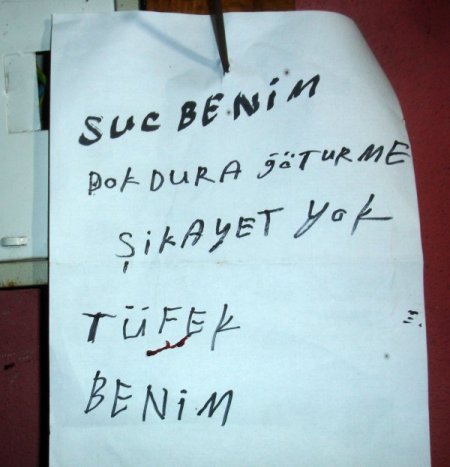 SUC BENİM
DOKDURA GÖTURME
ŞiKAYET YOK
TÜFEK
BENiM